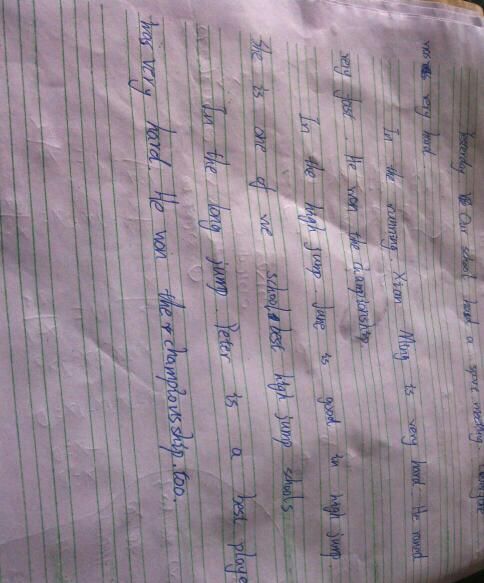 Recently Our school have a sport meeting. Everyone
was very hard
In the running Xiao Ming is very hard. He runed
very fast. He won the championship.
In the high jump June is good in high jump
He is one of we school best high jump school's
In the long jump. Peter is a best playe
was very hard. He won the championsship. too.